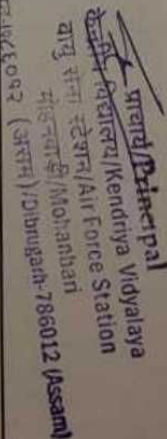 प्राचार्य/Principal
केन्द्रीय विद्यालय/Kendriya Vidyalaya
वायु सेना स्टेशन/Air Force Station
मोहनबाड़ी/Mohanbari
(असम)/Dibrugarh-786012 (Assam)